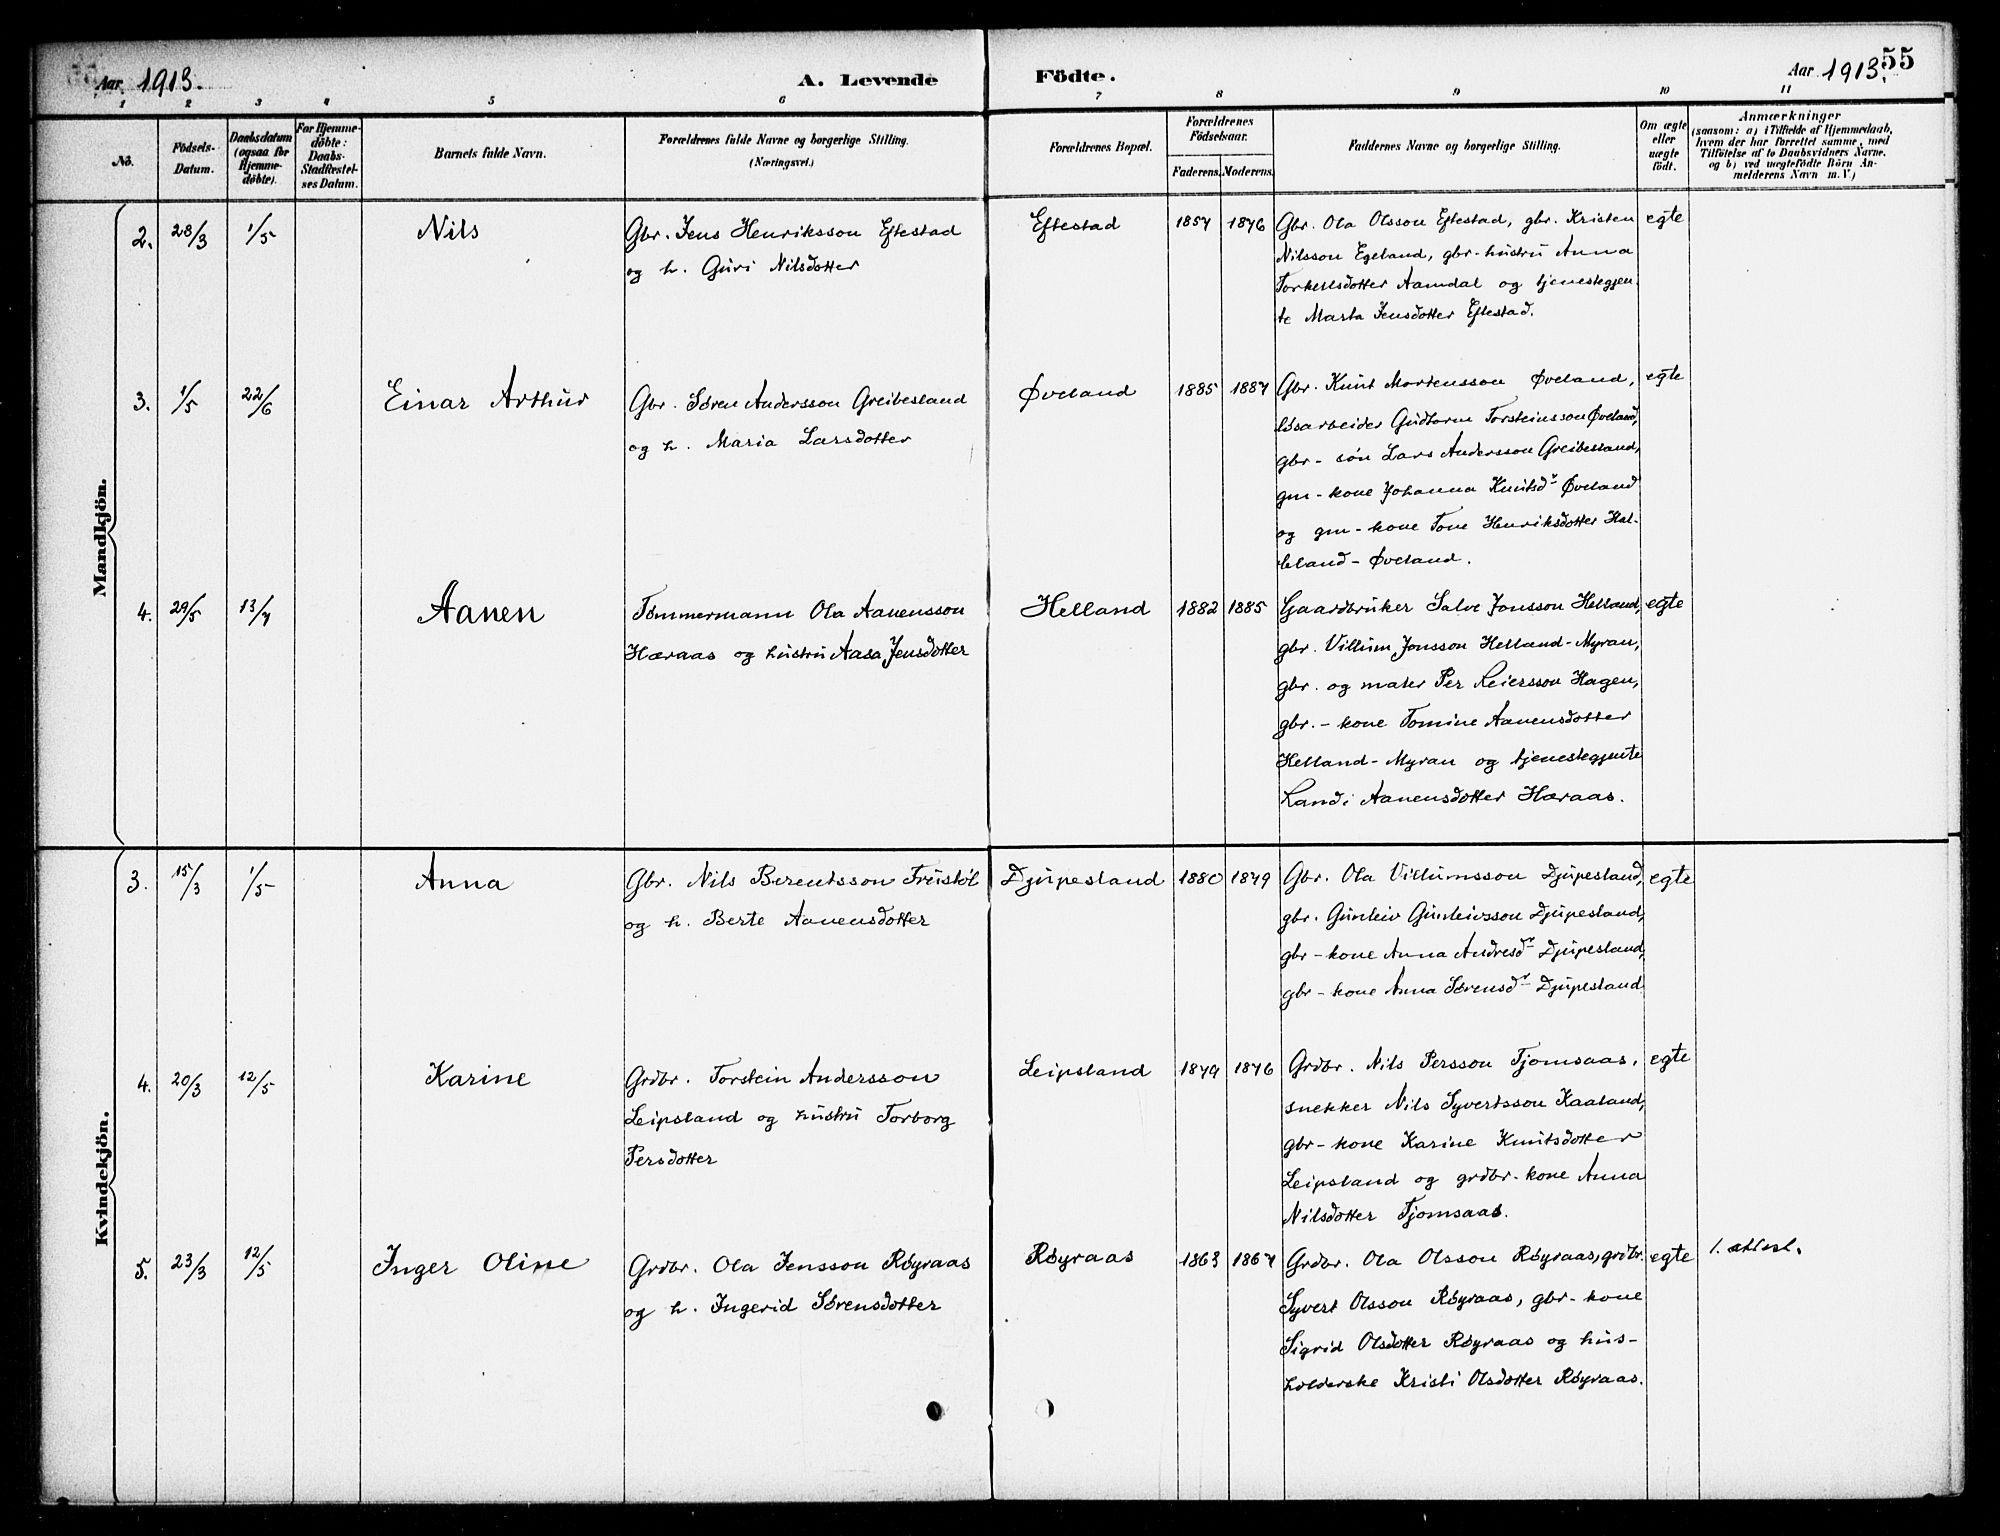 Aar 1913.
A. Levende
Födte.
Aar 1913.
55
1 2 3 4 5 6 7 8 9 10 11
No.
Födsels-
Datum.
Daabsdatum
(ogsaa for
Hjemme-
döbte).
For Hjemme-
döbte:
Daabs-
Stadfæstel-
ses Datum.
Barnets fulde Navn.
Forældrenes fulde Navne og borgerlige Stilling.
(Næringsvei.)
Forældrenes Bopæl.
Forældrenes
Födselsaar.
Faderens. Moderens.
Faddernes Navne og borgerlige Stilling.
Om ægte
eller
uægte
födt.
Anmærkninger
(saasom: a) i Tilfælde af Hjemmedaab,
hvem der har forrettet samme, med
Tilföielse af to Daabsvidners Navne,
og b) ved uægtefödte Börn An-
melderens Navn m. V.)
Mandkjön.
2. 28/3 1/5 Nils
Gbr. Jens Henriksson Eftestad
og h. Guri Nilsdotter
Eftestad 1857 1876
Gbr. Ola Olsson Eftestad, gbr. Kristen
Nilsson Egeland, gbr-hustru Anna
Torkellsdotter Aamdal og tjenestegjen-
te Marta Jensdotter Eftestad.
egte
3. 1/5 22/6 Einar Arthur
Gbr. Søren Andersson Greibesland
og h. Maria Larsdotter
Øveland 1885 1887
Gbr. Knut Mortensson Øveland,
løsarbeider Gudtorm Torsteinsson Øveland,
gbr-søn Lars Andersson Greibesland,
gm-kone Johanna Knutsdr Øveland
og gm-kone Tone Henriksdotter
-Øveland.
egte
4. 29/5 13/7 Aanen
Tømmermann Ola Aanensson
Hæraas og hustru Aasa Jensdotter
Helland 1882 1885
Gaardbruker Salve Jonsson Helland,
gbr. Villum Jonsson Helland-Myran,
gbr. og maler Per Reiersson Hagen,
gbr.-kone Tomine Aanensdotter
Helland-Myran og tjenestegjente
Randi Aanensdotter Hæraas.
egte
Kvindekjön.
3. 15/3 1/5 Anna
Gbr. Nils Berentsson Frustøl
og h. Berte Aanensdotter
Djupesland 1880 1879
Gbr. Ola Villumsson Djupesland,
gbr. Gunleiv Gunleivsson Djupesland,
gbr-kone Anna Andresdr Djupesland,
gbr-kone Anna Sørensdr Djupesland
egte
4. 20/3 12/5 Karine
Grdbr. Torstein Andersson
Leipsland og hustru Torborg
Persdotter
Leipsland 1879 1876
Grdbr. Nils Persson Tjomsaas,
snekker Nils Syvertsson Kaaland,
gbr-kone Karine Knutsdotter
Leipsland og grdbr-kone Anna
Nilsdotter Tjomsaas.
egte
5. 23/3 12/5 Inger Oline
Grdbr. Ola Jensson Røyraas
og h. Ingerid Sørensdotter
Røyraas 1863 1867
Grdbr. Ola Olsson Røyraas, grdbr.
Syvert Olsson Røyraas, gbr-kone
Sigrid Olsdotter Røyraas og hus-
holderske Kristi Olsdotter Røyraas.
egte
1. attest.